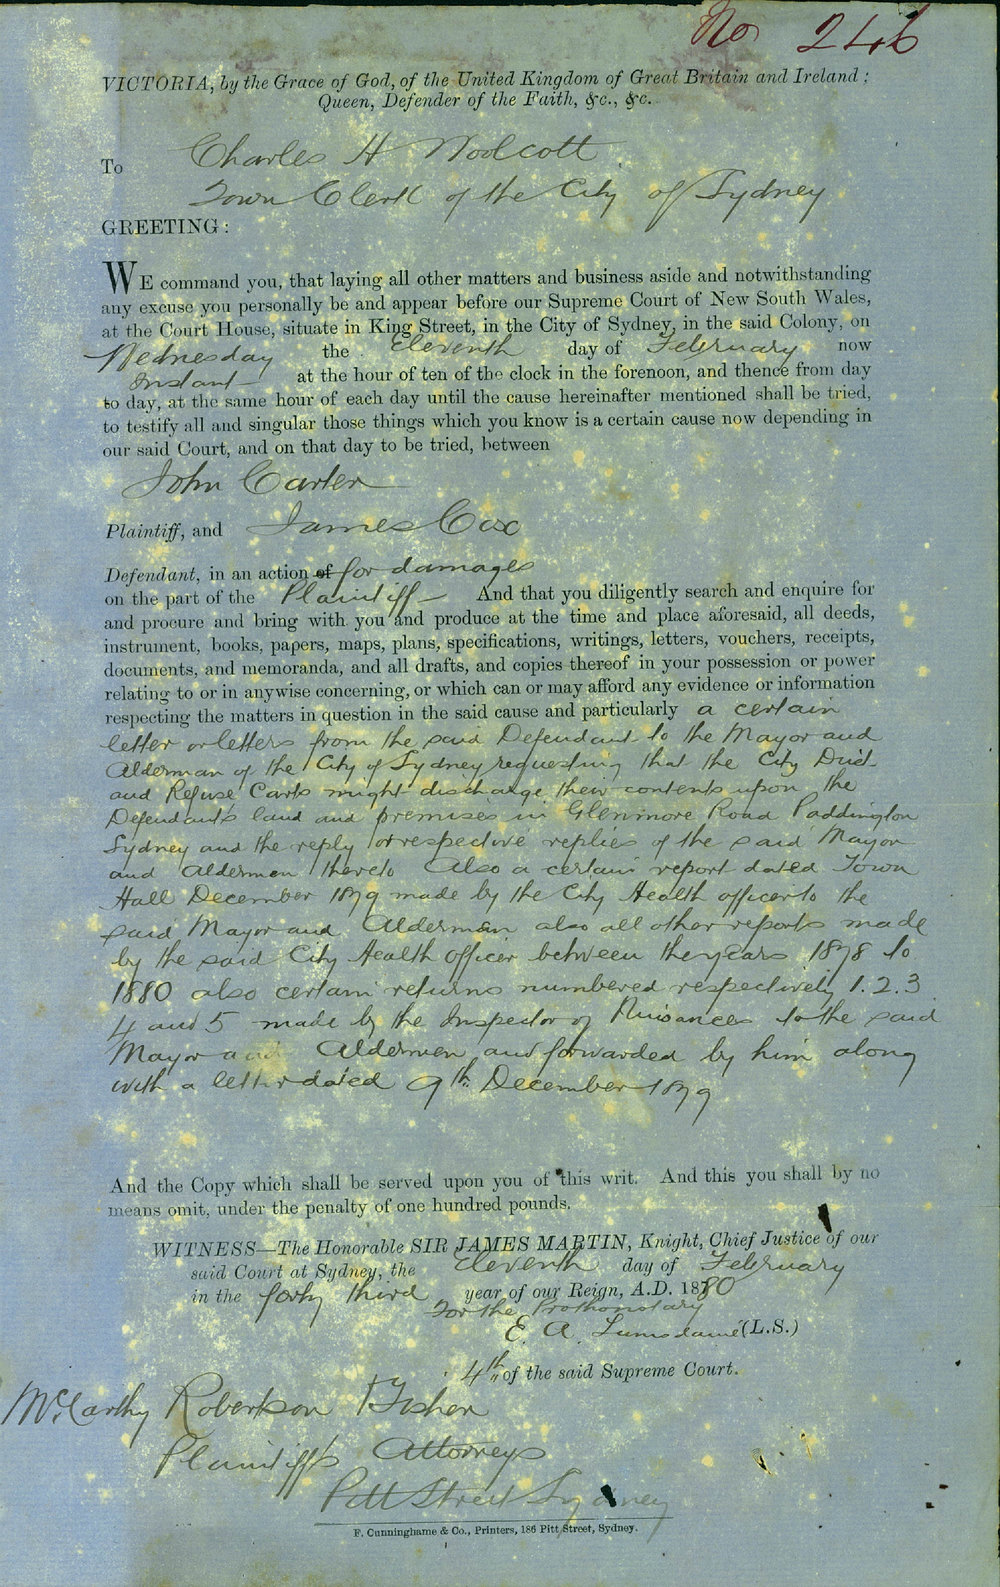 No 246
VICTORIA, by the Grace of God, of the United Kingdom of Great Britain and Ireland :
Queen, Defender of the Faith, &c., &c.
To Charles H Woolcott
Town Clerk of the City of Sydney
GREETING :
WE command you, that laying all other matters and business aside and notwithstanding
any excuse you personally be and appear before our Supreme Court of New South Wales,
at the Court House, situate in King Street, in the City of Sydney, in the said Colony, on
Wednesday the Eleventh day of February now
Instant at the hour of ten of the clock in the forenoon, and thence from day
to day, at the same hour of each day until the cause hereinafter mentioned shall be tried,
to testify all and singular those things which you know is a certain cause now depending in
our said Court, and on that day to be tried, between
John Carter
Plaintiff, and James Cox
Defendant, in an action of for damages
on the part of the Plaintiff And that you diligently search and enquire for
and procure and bring with you and produce at the time and place aforesaid, all deeds,
instrument, books, papers, maps, plans, specifications, writings, letters, vouchers, receipts,
documents, and memoranda, and all drafts, and copies thereof in your possession or power
relating to or in anywise concerning, or which can or may afford any evidence or information
respecting the matters in question in the said cause and particularly a certain
letter or letters from the said Defendant to the Mayor and
Alderman of the City of Sydney requesting that the City Dust
and Refuse Carts might discharge their contents upon the
Defendant's land and premises in Glenmore Road Paddington
Sydney and the reply or respective replies of the said Mayor
and Aldermen thereto Also a certain report dated Town
Hall December 1879 made by the City Health officer to the
said Mayor and Aldermen also all other reports made
by the said City Health Officer between the years 1878 to
1880 also certain returns numbered respectively 1. 2. 3
4 and 5 made by the Inspector of Nuisances to the said
Mayor and Aldermen and forwarded by him along
with a letter dated 9th December 1879
And the Copy which shall be served upon you of this writ. And this you shall by no
means omit, under the penalty of one hundred pounds.
WITNESS—The Honorable SIR JAMES MARTIN, Knight, Chief Justice of our
said Court at Sydney, the Eleventh day of February
in the forty third year of our Reign, A.D. 1880
For the Prothonotary
E. A. Lumsdaine (L.S.)
4th of the said Supreme Court.
McCarthy Robertson & Fisher
Plaintiff's Attorneys
Pitt Street Sydney
F. Cunninghame & Co., Printers, 186 Pitt Street, Sydney.